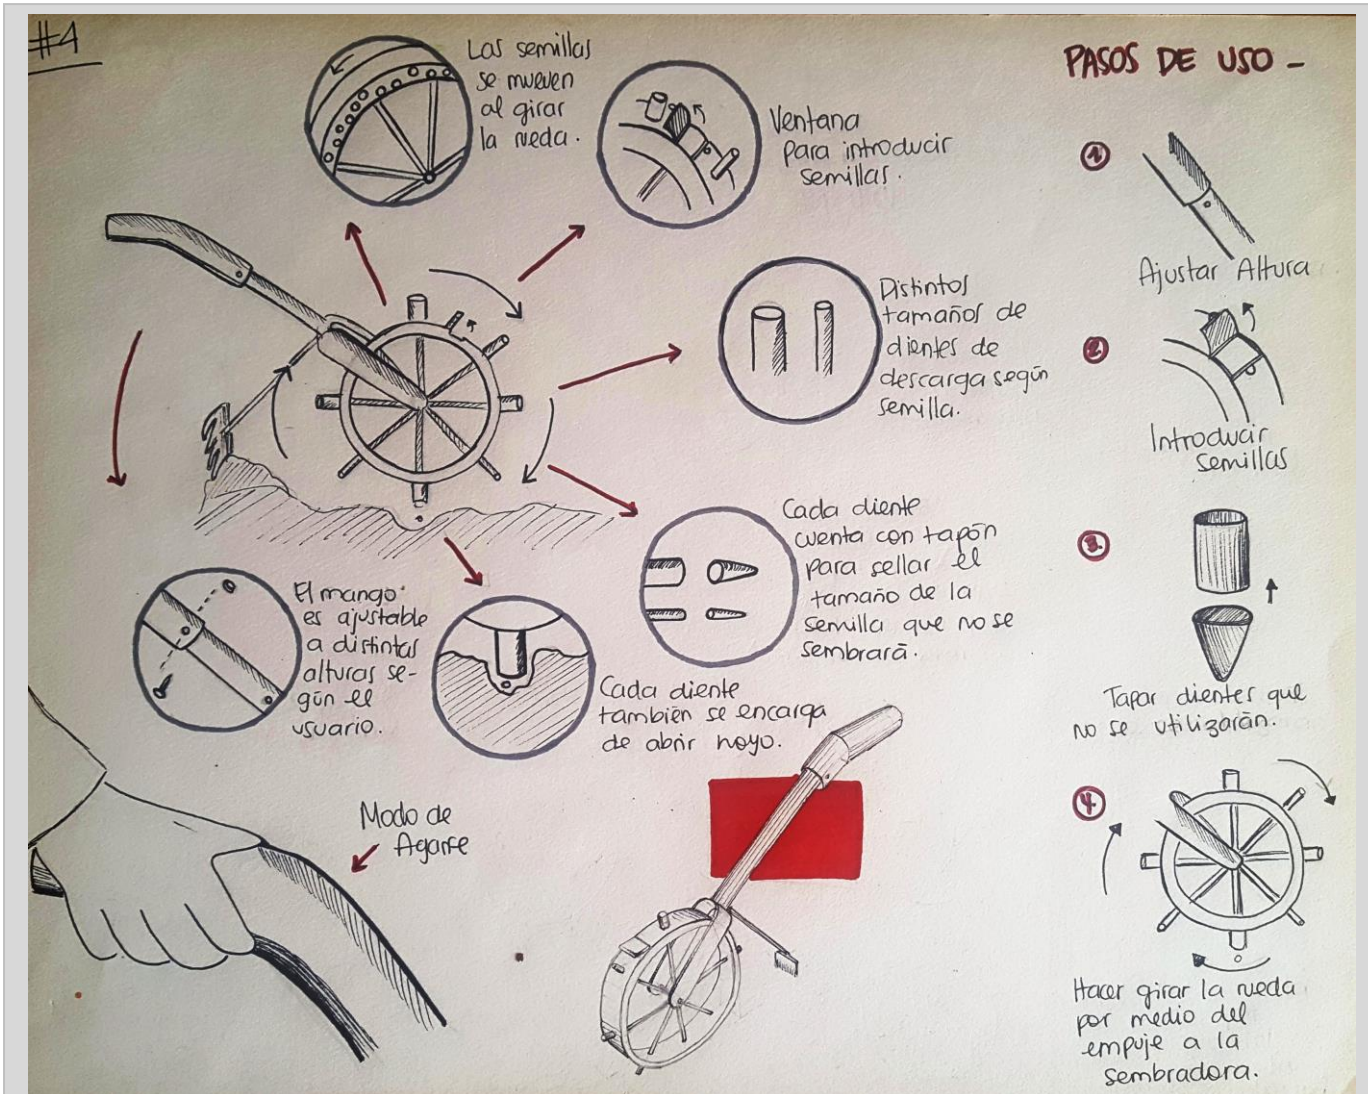 #4
Las semillas
se mueven
al girar
la rueda.
Ventana
para introducir
semillas.
Distintos
tamaños de
dientes de
descarga según
semilla.
Cada diente
cuenta con tapón
para sellar el
tamaño de la
semilla que no se
sembrará.
El mango
es ajustable
a distintas
alturas se-
gún el
usuario.
Cada diente
también se encarga
de abrir hoyo.
Modo de
Agarre
PASOS DE USO -
1.
Ajustar Altura
2.
Introducir
semillas
3.
Tapar dientes que
no se utilizarán.
4.
Hacer girar la rueda
por medio del
empuje a la
sembradora.